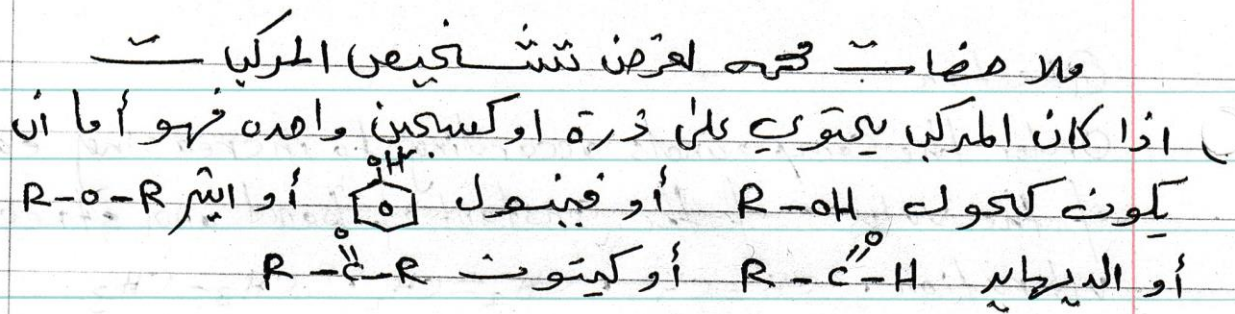 ملاحضات مهمه لغرض تشخيص المركبات
اذا كان المركب يحتوي على ذرة اوكسجين واحده فهو أما أن
يكون كحول R-OH أو فينول OH أو ايثر R-O-R
أو الديهايد R-C-H O أو كيتون R-C-R O